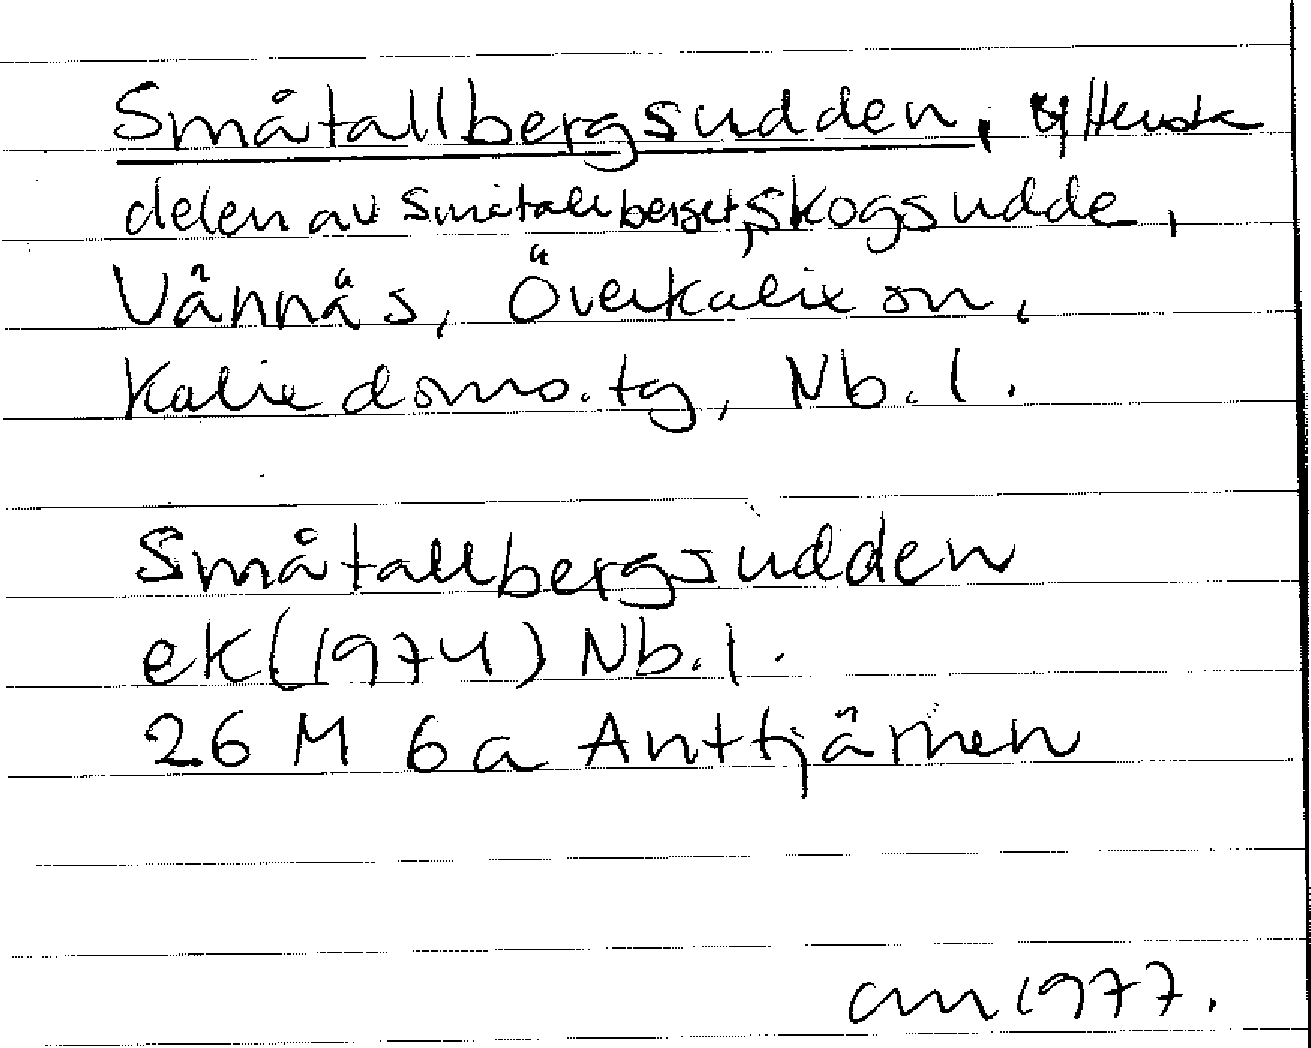 Småtallbergsudden, yttersta
delen av Småtallberget, skogsudde,
Vännäs, Överkalix sn,
Kalix doms.tg, Nb. l.
Småtallbergsudden
ek (1974) Nb. l.
26 M 6a Anttjärnen
am 1977.